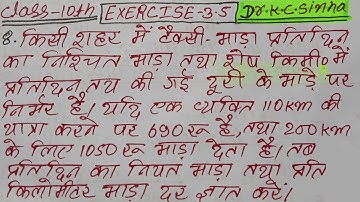 Class-10th EXERCISE-3.5 Dr. K.C. Sinha
8. किसी शहर में टैक्सी-भाड़ा प्रतिदिन
का निश्चित भाड़ा तथा शेष किमी० में
प्रतिदिन तय की गई दूरी के भाड़े पर
निर्भर है। यदि एक व्यक्ति 110km की
यात्रा करने पर 690 रू है, तथा 200km
के लिए 1050 रू भाड़ा देता है। तब
प्रतिदिन का नियत भाड़ा तथा प्रति
किलोमीटर भाड़ा दर ज्ञात करें।